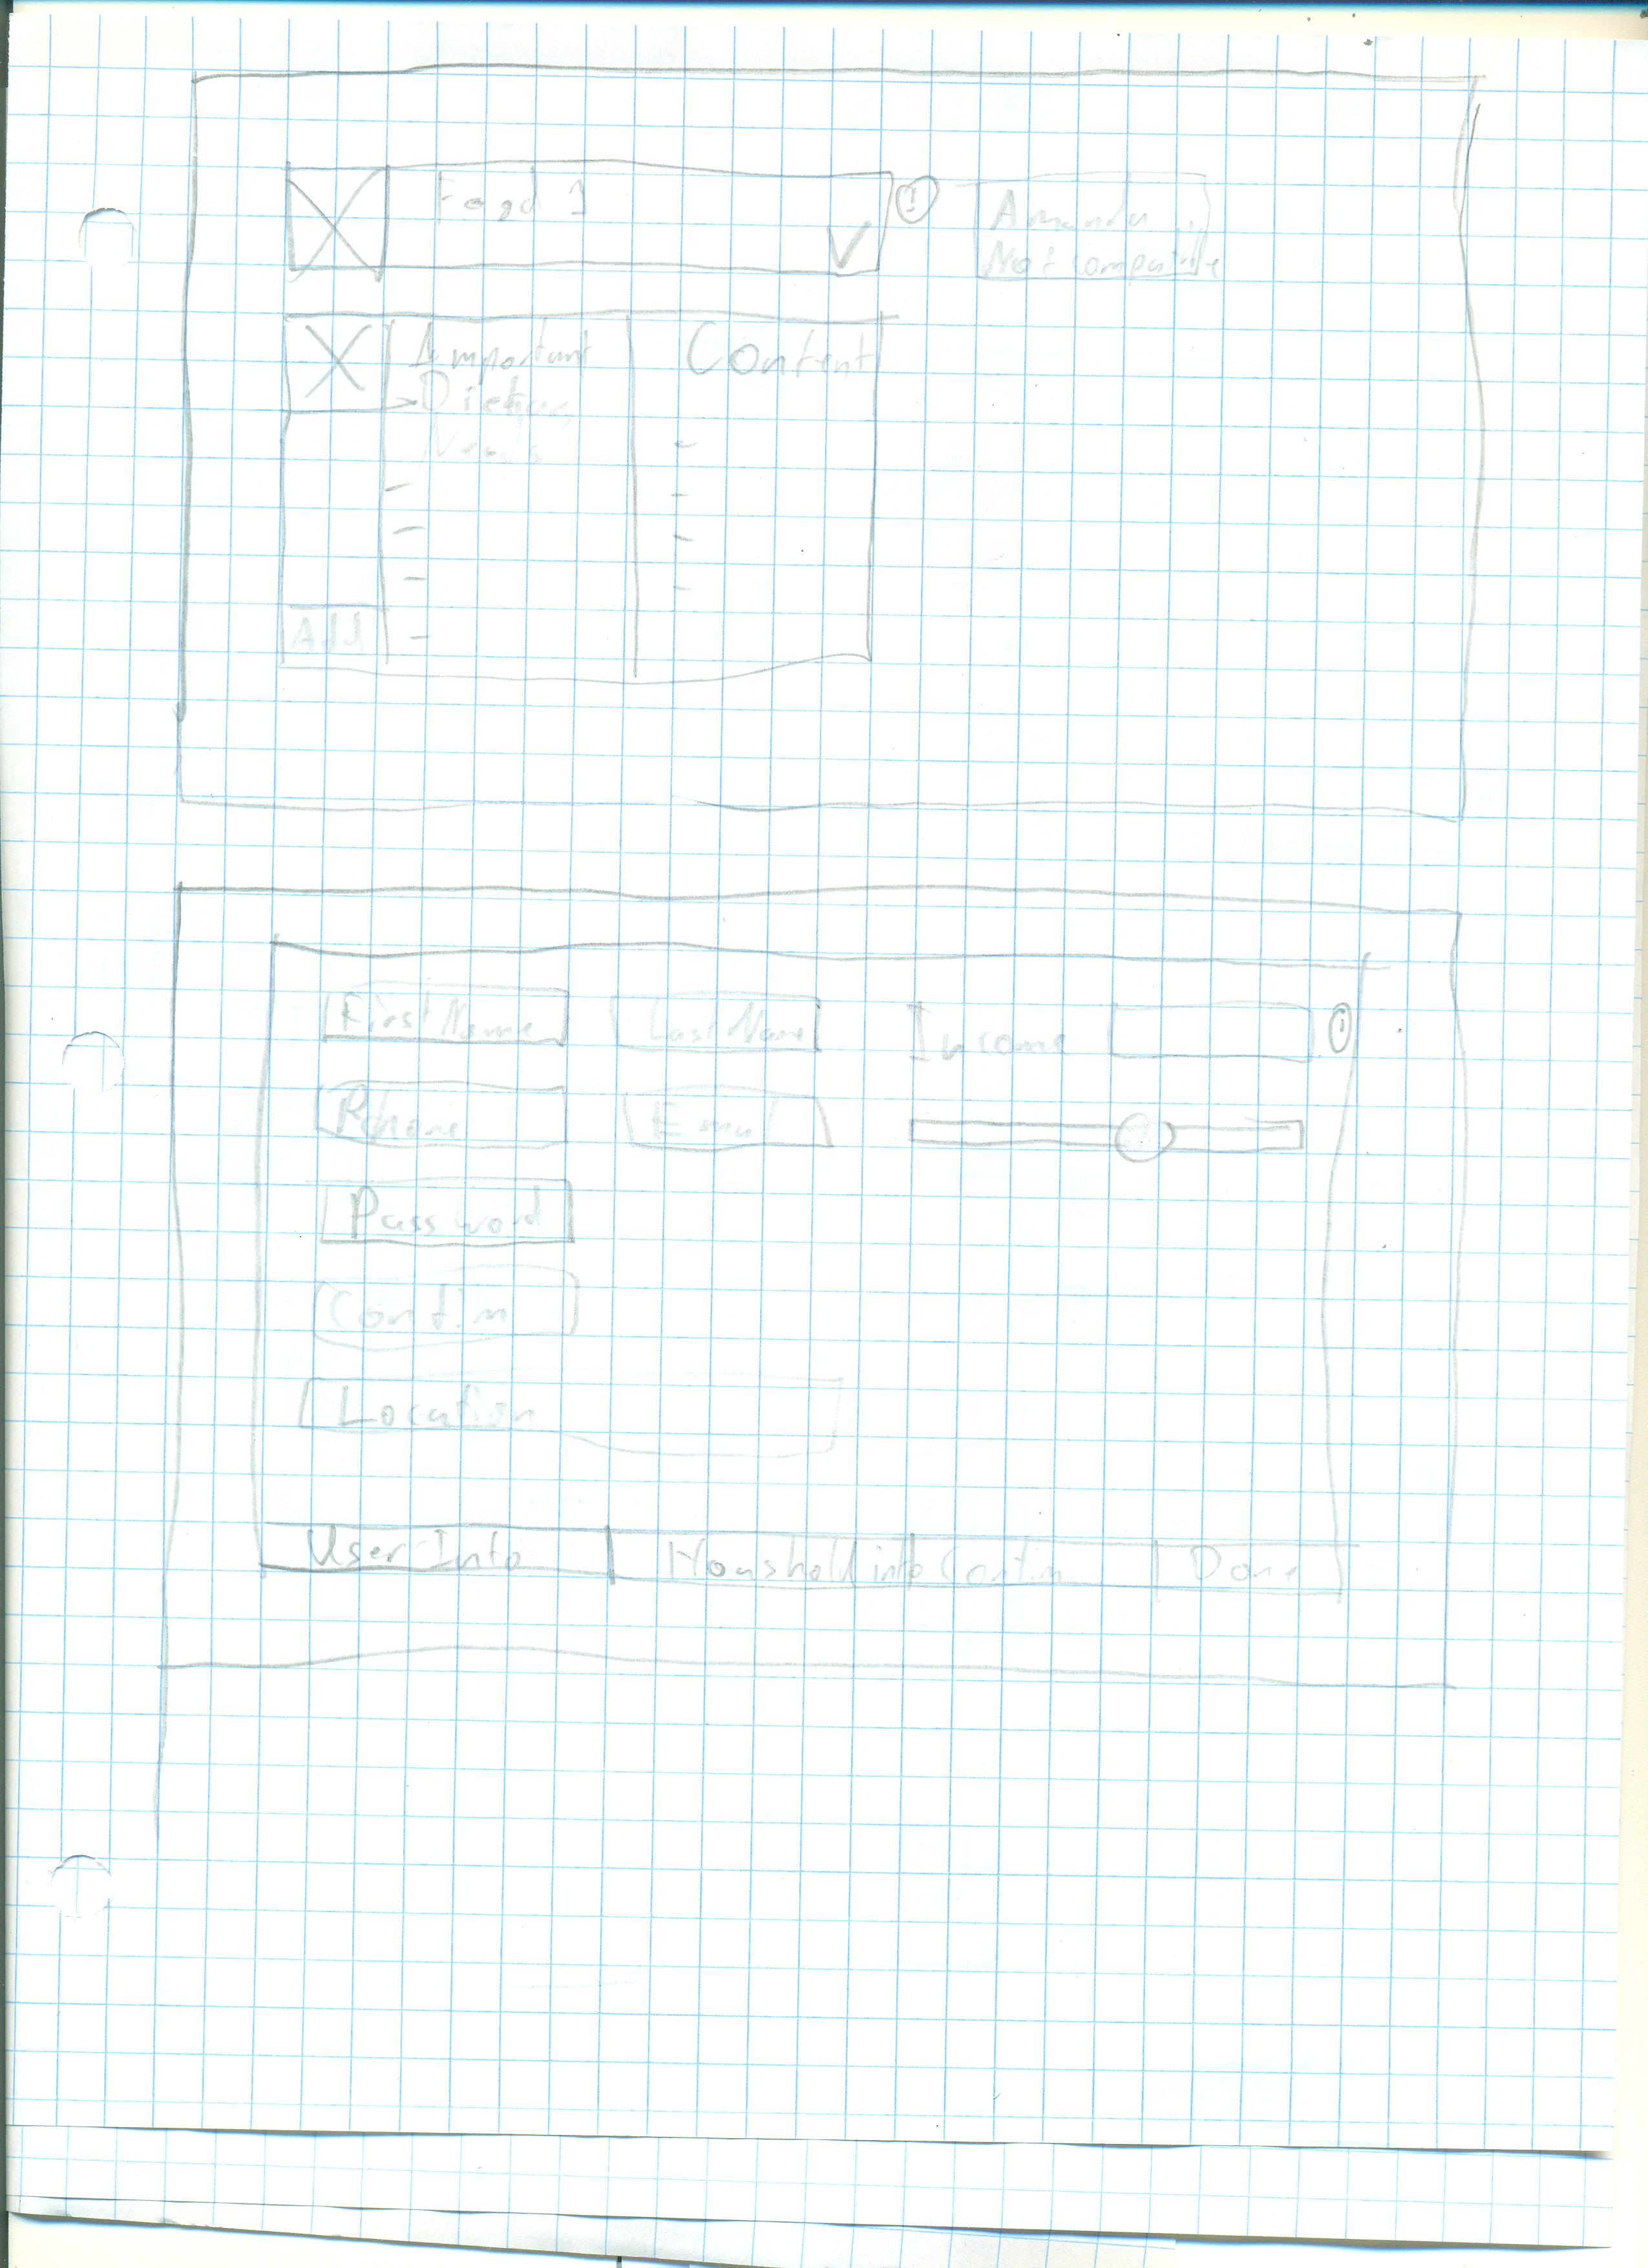 Food 1
!
Amanda
Not compatible
Important
Dietary
Needs
Content
Add
First Name
Last Name
Income
Phone
Email
Password
Confim
Location
User Info
Houshold info
Confim
Done